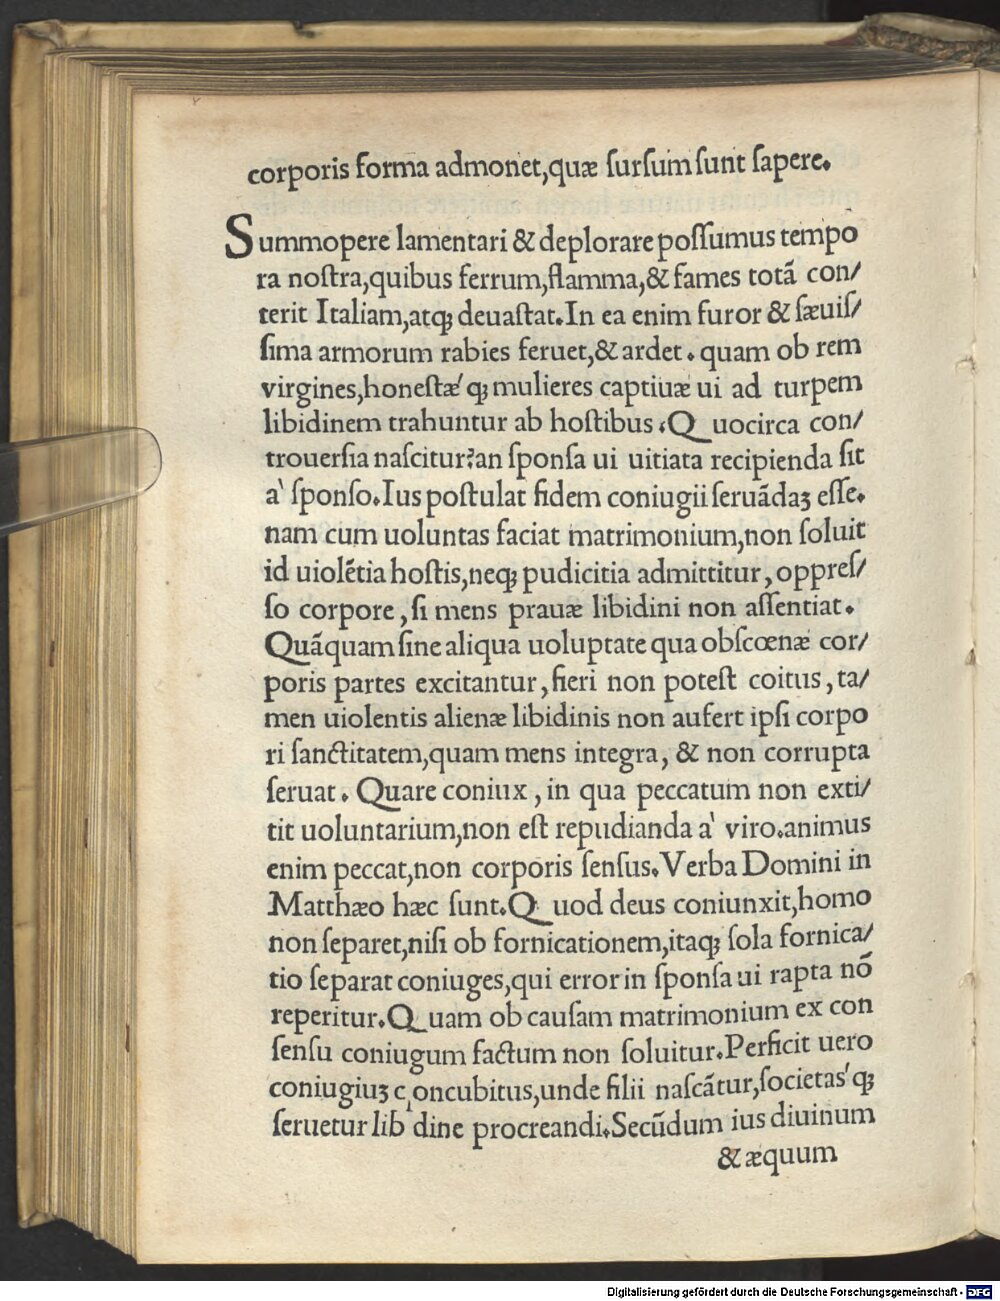 corporis forma admonet,quæ ſurſum ſunt ſapere.
Summopere lamentari & deplorare poſſumus tempo
ra noſtra,quibus ferrum,flamma,& fames totã con/
terit Italiam,atqꝫ deuaſtat.In ea enim furor & ſæuiſ/
ſima armorum rabies feruet,& ardet. quam ob rem
virgines,honeſtæ' qꝫ mulieres captiuæ ui ad turpem
libidinem trahuntur ab hoſtibus.Quocirca con/
trouerſia naſcitur?an ſponſa ui uitiata recipienda ſit
a' ſponſo.Ius poſtulat fidem coniugii ſeruãdaꝫ eſſe.
nam cum uoluntas faciat matrimonium,non ſoluit
id uiolẽtia hoſtis,neqꝫ pudicitia admittitur,oppreſ/
ſo corpore,ſi mens prauæ libidini non aſſentiat.
Quãquam ſine aliqua uoluptate qua obſcœnæ cor/
poris partes excitantur,fieri non poteſt coitus,ta/
men uiolentis alienæ libidinis non aufert ipſi corpo
ri ſanctitatem,quam mens integra, & non corrupta
ſeruat. Quare coniux, in qua peccatum non exti/
tit uoluntarium,non eſt repudianda a' viro.animus
enim peccat,non corporis ſenſus.Verba Domini in
Matthæo hæc ſunt.Quod deus coniunxit,homo
non ſeparet,niſi ob fornicationem,itaqꝫ ſola fornica/
tio ſeparat coniuges,qui error in ſponſa ui rapta nõ
reperitur.Quam ob cauſam matrimonium ex con
ſenſu coniugum factum non ſoluitur.Perficit uero
coniugiuꝫ concubitus,unde filii naſcãtur,ſocietas' qꝫ
ſeruetur libidine procreandi.Secũdum ius diuinum
& æquum
Digitalisierung gefördert durch die Deutsche Forschungsgemeinschaft - DFG